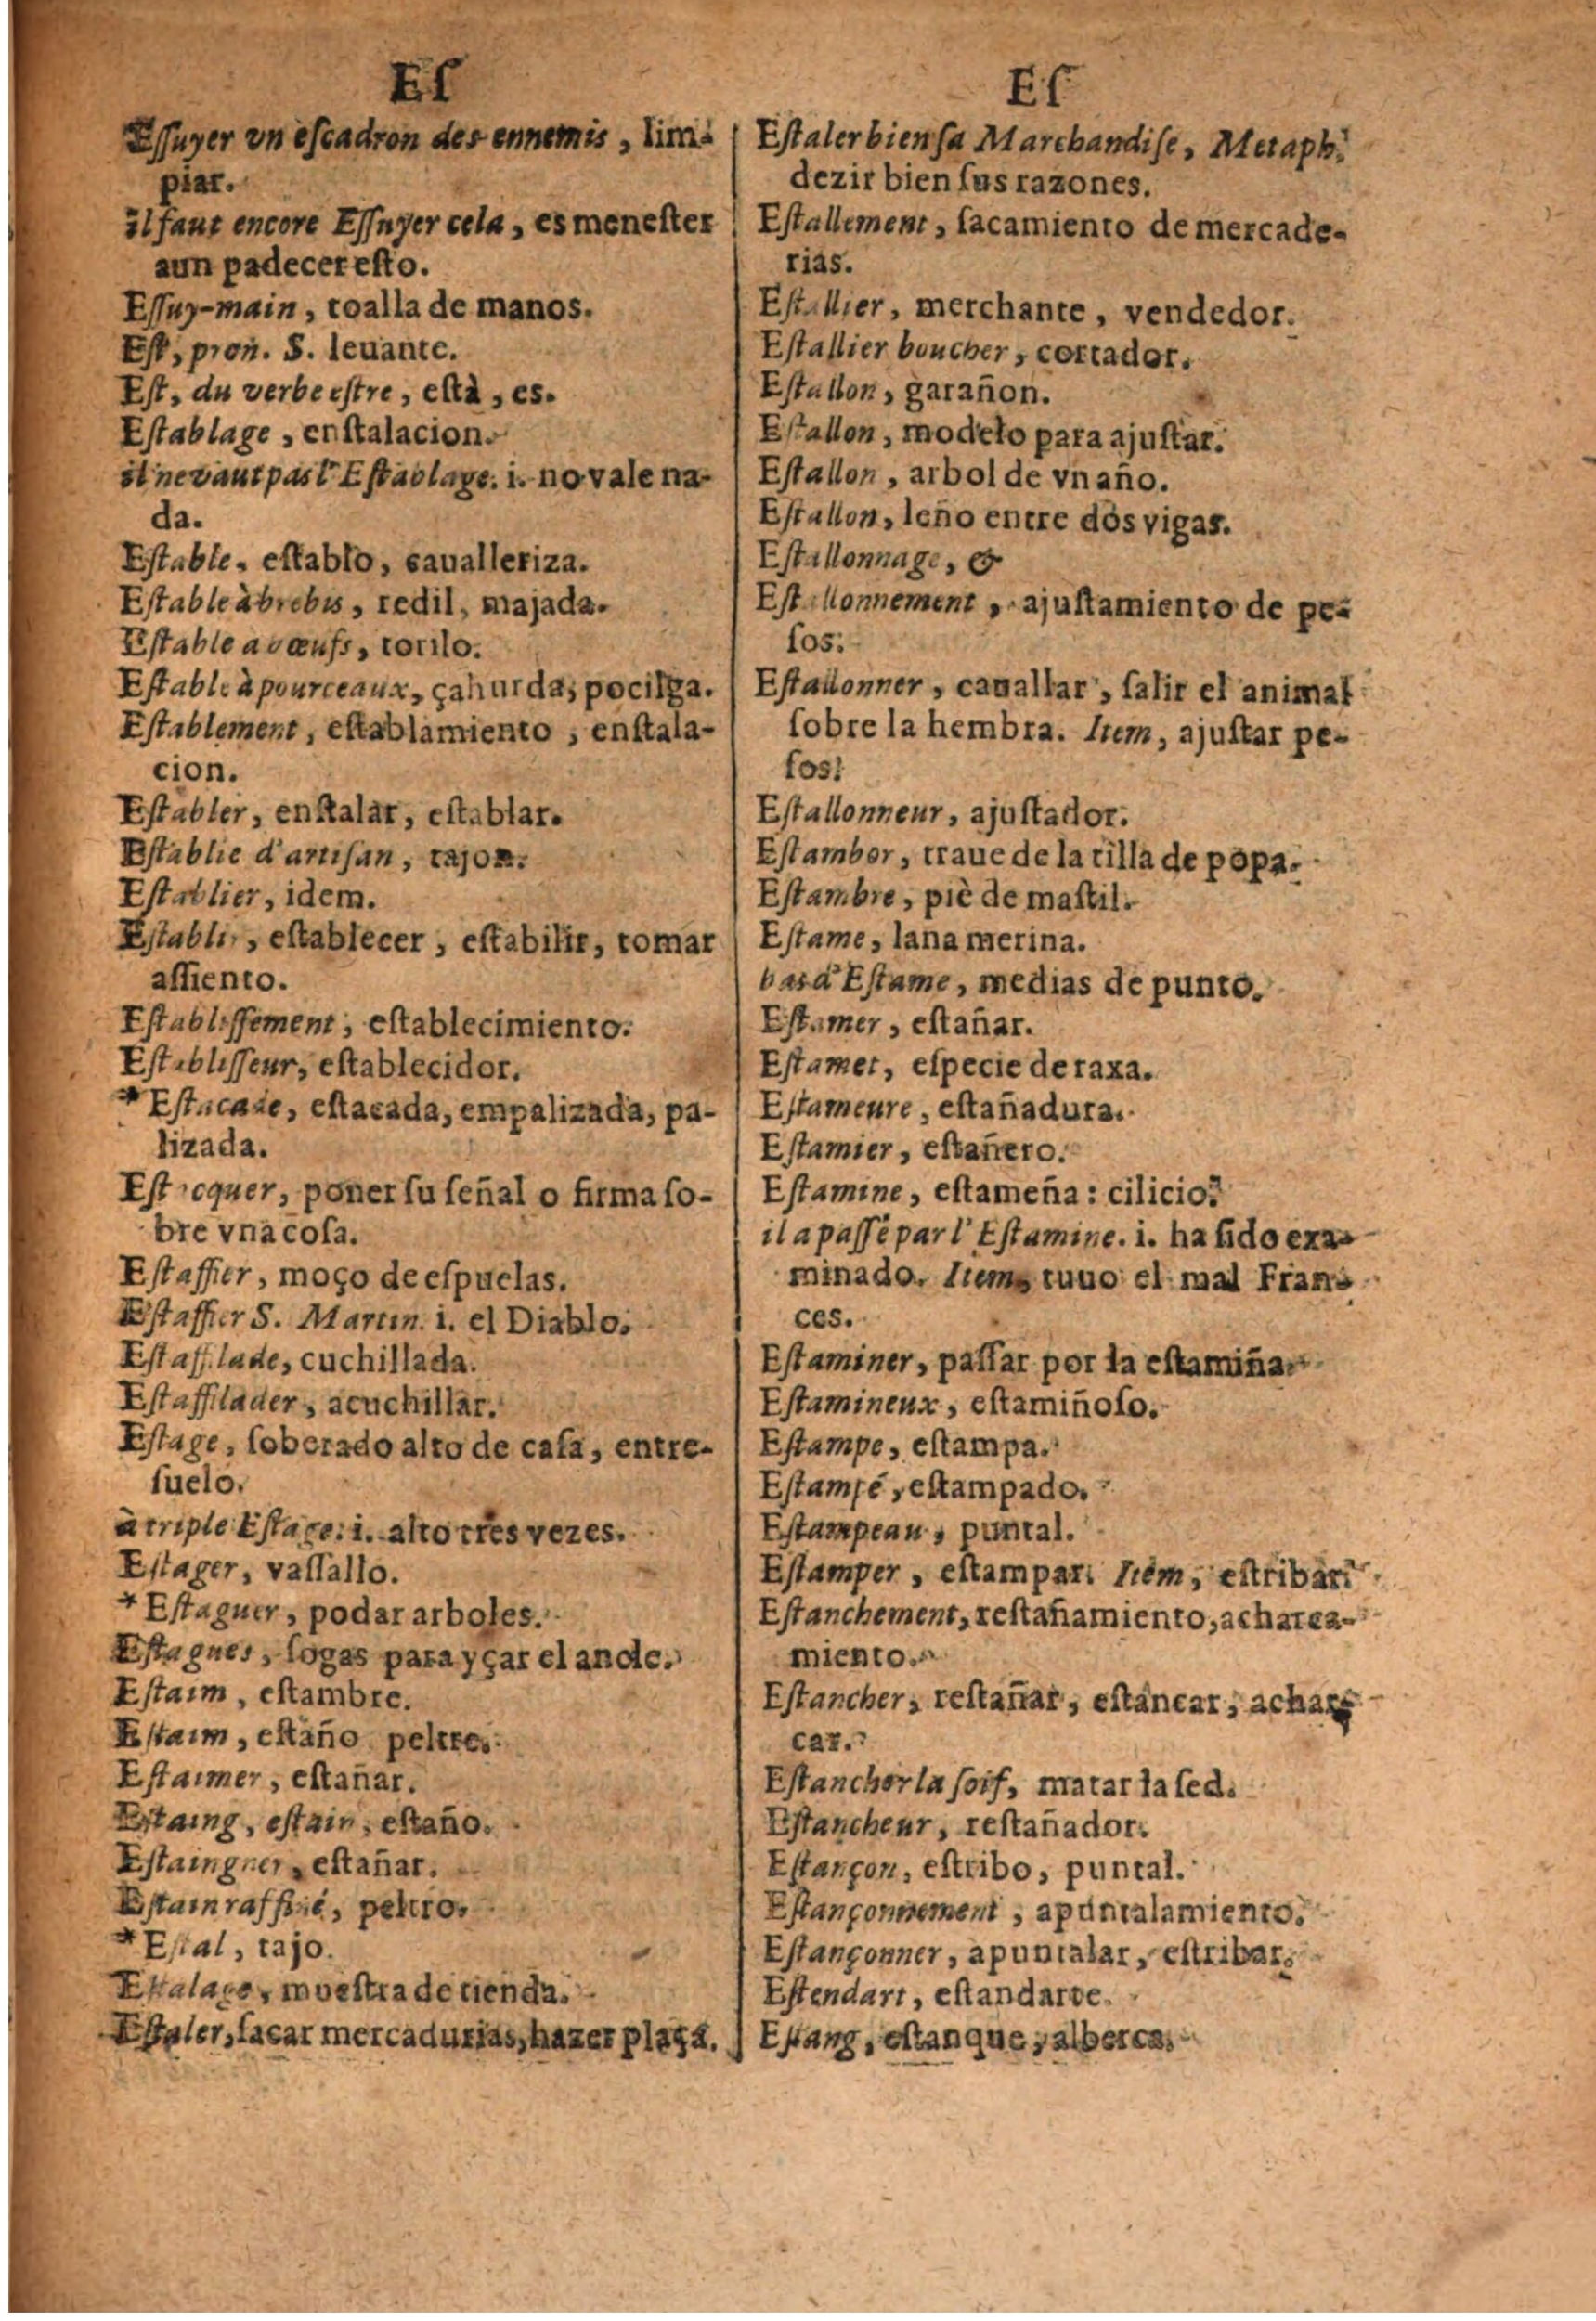 Eſ
Eſſuyer vn eſcadron des ennemis, lim-
piar.
il faut encore Eſſuyer cela, es meneſter
aun padecer eſto.
Eſſuy-main, toalla de manos.
Eſt, pron. S. leuante.
Eſt, du verbe eſtre, eſtà, es.
Eſtablage, enſtalacion.
il ne vaut pas l'Eſtablage. i. no vale na-
da.
Eſtable, eſtablo, cavalleriza.
Eſtable à brebis, redil, majada.
Eſtable a bœufs, torilo.
Eſtable à pourceaux, çahurda, pocilga.
Eſtablement, eſtablamiento, enſtala-
cion.
Eſtabler, enſtalar, eſtablar.
Eſtablie d'artiſan, tajon.
Eſtablier, idem.
Eſtablir, eſtablecer, eſtabilir, tomar
aſſiento.
Eſtabliſſement, eſtablecimiento.
Eſtabliſſeur, eſtablecidor.
*Eſtacade, eſtacada, empalizada, pa-
lizada.
Eſtacquer, poner ſu ſeñal o firma ſo-
bre vna coſa.
Eſtaffier, moço de eſpuelas.
Eſtaffier S. Martin. i. el Diablo.
Eſtaffilade, cuchillada.
Eſtaffilader, acuchillar.
Eſtage, ſoberado alto de caſa, entre-
ſuelo.
à triple Eſtage. i. alto tres vezes.
Eſtager, vaſſallo.
*Eſtaguer, podar arboles.
Eſtagues, ſogas para yçar el ancle.
Eſtaim, eſtambre.
Eſtaim, eſtaño peltre.
Eſtaimer, eſtañar.
Eſtaing, eſtain, eſtaño.
Eſtaingner, eſtañar.
Eſtain raffiné, peltro.
*Eſtal, tajo.
Eſtalage, mueſtra de tienda.
Eſtaler, ſacar mercadurias, hazer plaça.
Eſ
Eſtaler bien ſa Marchandiſe, Metaph.
dezir bien ſus razones.
Eſtallement, ſacamiento de mercade-
rias.
Eſtallier, merchante, vendedor.
Eſtallier boucher, cortador.
Eſtallon, garañon.
Eſtallon, modelo para ajuſtar.
Eſtallon, arbol de vn año.
Eſtallon, leño entre dos vigas.
Eſtallonnage, &
Eſtallonnement, ajuſtamiento de pe-
ſos.
Eſtallonner, cauallar, ſalir el animal
ſobre la hembra. Item, ajuſtar pe-
ſos.
Eſtallonneur, ajuſtador.
Eſtambor, traue de la tilla de popa.
Eſtambre, piè de maſtil.
Eſtame, lana merina.
bas d'Eſtame, medias de punto.
Eſtamer, eſtañar.
Eſtamet, eſpecie de raxa.
Eſtameure, eſtañadura.
Eſtamier, eſtañero.
Eſtamine, eſtameña: cilicio.
il a paſſé par l'Eſtamine. i. ha ſido exa-
minado. Item, tuuo el mal Fran-
ces.
Eſtaminer, paſſar por la eſtamiña.
Eſtamineux, eſtamiñoſo.
Eſtampe, eſtampa.
Eſtampé, eſtampado.
Eſtampeau, puntal.
Eſtamper, eſtampar. Item, eſtribar.
Eſtanchement, reſtañamiento, acharca-
miento.
Eſtancher, reſtañar, eſtancar, achar-
car.
Eſtancher la ſoif, matar la ſed.
Eſtancheur, reſtañador.
Eſtançon, eſtribo, puntal.
Eſtançonnement, apuntalamiento.
Eſtançonner, apuntalar, eſtribar.
Eſtendart, eſtandarte.
Eſtang, eſtanque, alberca.